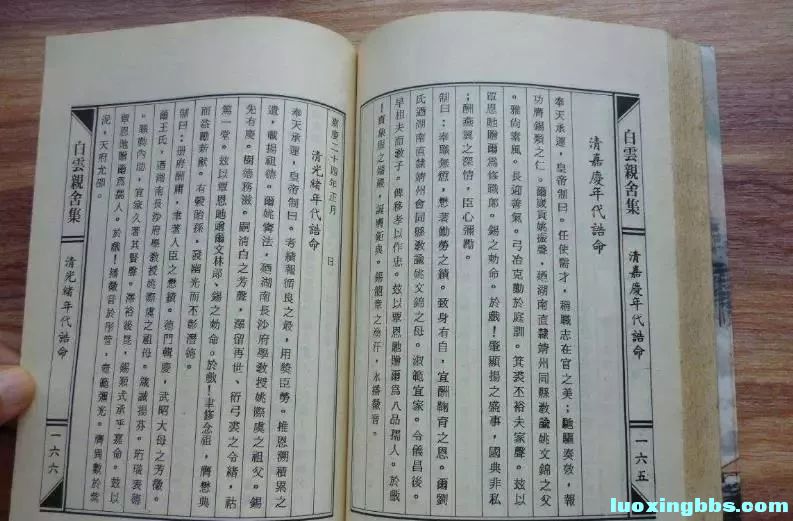 白雲親舍集
清嘉慶年代誥命
一六五
清嘉慶年代誥命
奉天承運，皇帝制曰。任使需才，稱職志在官之美；馳驅奏效，報
功膺錫類之仁。爾歲貢姚振聲，迺湖南直隸靖州同縣教諭姚文錦之父
。雅尚素風。長迎善氣。弓冶克勤於庭訓。箕裘不裕夫家聲。茲以
覃恩馳贈爾為修職郎。錫之勅命。於戲！肇顯揚之盛事，國典非私
；酬燕翼之深情，臣心彌勵。
制曰：奉職無愆，懋著勤勞之績。致身有自，宜酬鞠育之恩。爾劉
氏迺湖南直隸靖州會同縣教諭姚文錦之母。淑範宜家。令儀昌後。
早相夫而教子。俾移孝以作忠。茲以覃恩馳贈爾為八品孺人。於戲
！賁象服之端嚴，誕膺鉅典。錫龍章之渙汗，永播徽音。
嘉慶二十四年正月　日
清光緒年代誥命
奉天承運，皇帝制曰。考績報循良之最，用獎臣勞。推恩溯積累之
遺，載揚祖德。爾姚 法，迺湖南長沙府學教授姚際虞之祖父。錫
先有慶。樹德務滋。嗣清白之芳聲，澤留再世、衍弓裘之令緒，祜
篤一堂。茲以覃恩馳贈爾文林郎、錫之勅命。於戲！聿修念祖，膺懋典
而益勵新猷。有穀貽孫，發幽光而不彰潛德。
制曰：冊府酬庸，聿著人臣之懋績。德門輯慶，式昭大母之芳徽。
爾王氏，迺湖南長沙府學教授姚際虞之祖母。箴誡揚芬。珩璜表德
。職勤內助，宜家久著其賢聲。澤裕後昆，錫類式承乎嘉命。茲以
覃恩馳贈爾為孺人。於戲！播徽音於彤管，壼範彌光。膺異數於紫
泥，天府允卲。
白雲親舍集
清光緒年代誥命
一六六
luoxingbbs.com